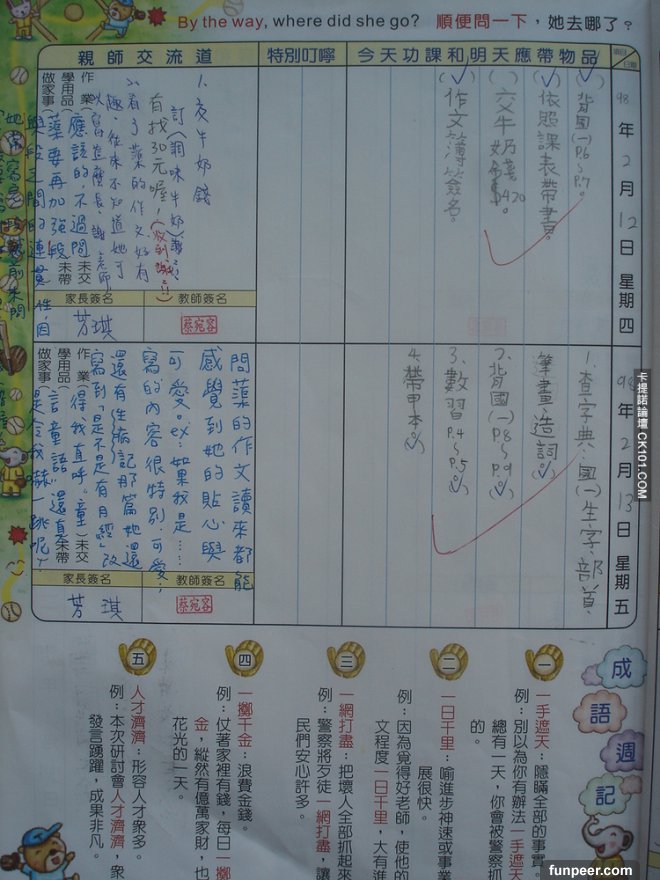 By the way, where did she go? 順便問一下，她去哪了？
項目
日期
今天功課和明天應帶物品
特別叮嚀
親師交流道
98年2月12日 星期四
(✓)背國(一)P.6～P.7。
(✓)依照課表帶書。
( )交牛奶錢420。
(✓)作文簿簽名。
1、交牛奶錢
訂(調味牛奶)
有找30元喔，(收到
2、看了葉的作文好有
趣，從來不知道她可
以寫這麼長，謝謝老師
應該的，不過間
葉要再加強段
與段之間的連貫
性，因
作業( )未交
學用品( )未帶
做家事( )
家長簽名
芳琪
教師簽名
蔡宛容
98年2月13日 星期五
1、查字典：國(一)生字、部首、
筆畫、造詞(✓)
2、背國(一)P.8～P.9(✓)
3、數習P.4～P.5(✓)
4、帶甲本(✓)
葉的作文讀來都能
感覺到她的貼心與
可愛。ex：如果我是……
寫的內容很特別、可愛，
還有性病記那篇她還
寫到「是不是有月經」
得，我直呼「童
言童語」還真
是令我嚇一跳呢！
作業( )未交
學用品( )未帶
做家事( )
家長簽名
芳琪
教師簽名
蔡宛容
成語週記
一
一手遮天：隱瞞全部的事實。
例：別以為你有辦法一手遮天
總有一天，你會被警察抓
的。
二
一日千里：喻進步神速或事業
展很快。
例：因為覺得好老師，使他的
文程度一日千里，大有進
三
一網打盡：把壞人全部抓起來
例：警察將歹徒一網打盡，讓
民們安心許多。
四
一擲千金：浪費金錢。
例：仗著家裡有錢，每日一擲
金，縱然有億萬家財，也
花光的一天。
五
人才濟濟：形容人才衆多。
例：本次研討會人才濟濟，衆
發言踴躍，成果非凡。
卡提諾論壇 CK101.COM
funpeer.com